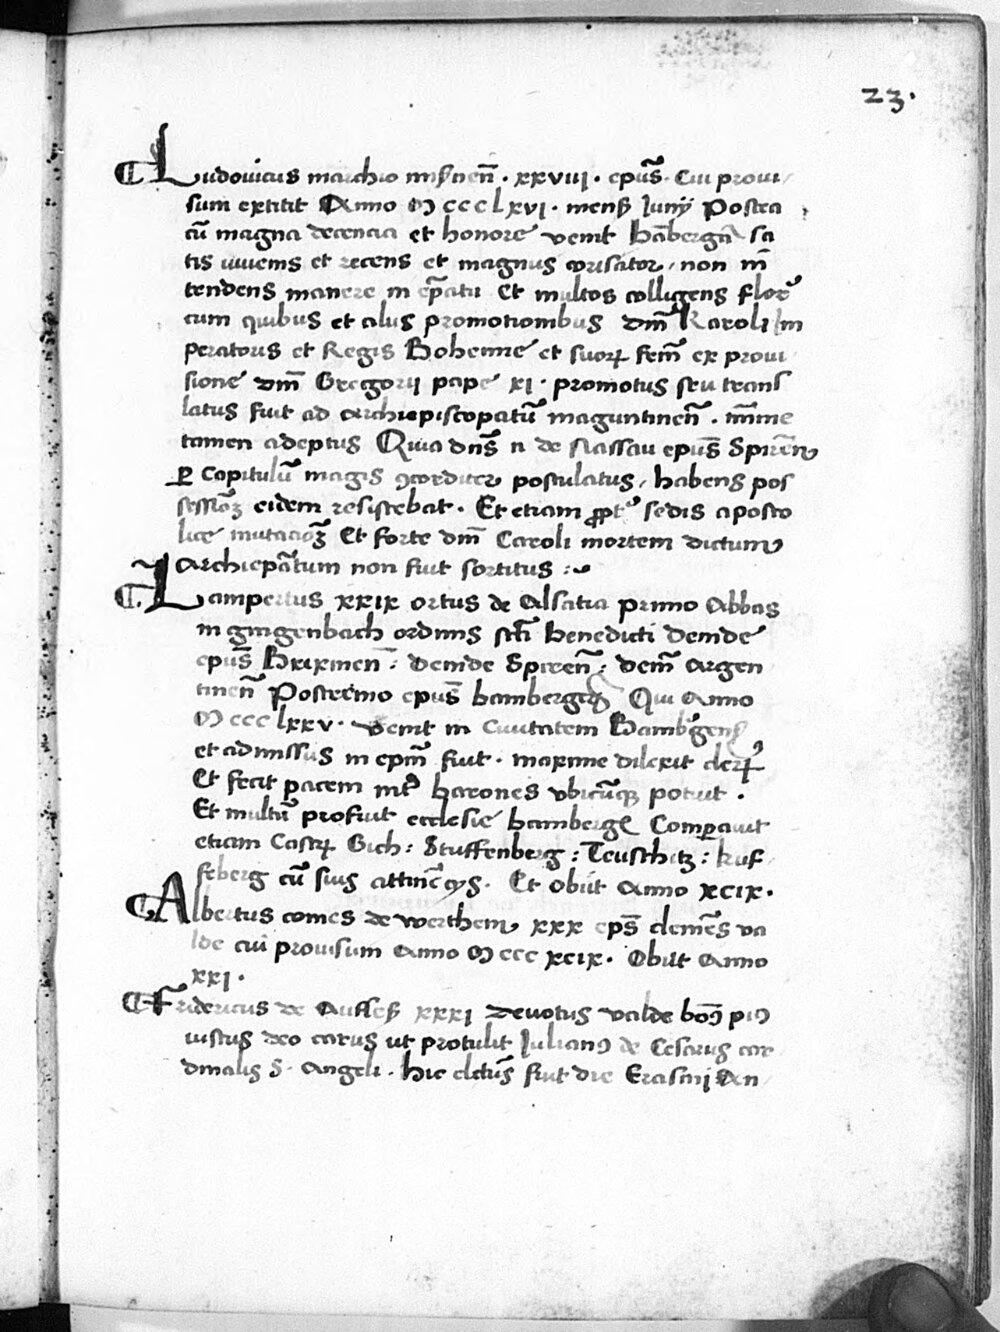 23.
Ludovicus marchio misnen̄. xxviii. ep̄us. Cui provi
sum extitit Anno M ccc lxvi. mens̄ Junij Postea
cū magna decencia et honore venit Bābergā sa
tis iuvenis et recens et magnus corisator, non in
tendens manere in ep̄atu Et multos colligens flor
cum quibus et aliis promotionibus dm̄ Karoli Im
peratoris et Regis Bohemie et suorꝝ fecīt ex provi
sione dm̄ Gregorii pape xi. promotus seu trans
latus fuit ad Archiepiscopatū maguntinen̄. mīme
tamen adeptus Quia dn̄s a de Nassau ep̄us Spiren̄
ꝑ Capitulū magis ꝯcorditer postulatus, habens pos
sessioꝫ eidem resistebat. Et etiam ꝓpt̄ sedis aposto
lice mutacioꝫ Et forte dm̄ Caroli mortem dictum
Archiep̄atum non fuit sortitus :~
Lampertus xxix ortus de Alsatia Primo Abbas
in gingenbach ordinis sc̄ti benedicti Deinde
ep̄us Brixinen̄: deinde Spiren̄: dem̄ Argen
tinen̄ Postremo ep̄us bamberges̄ Qui Anno
M ccc lxxv. venit in Civitatem Bambgens̄
et admissus in ep̄m fuit. maxime dilexit clerꝝ
Et fecit pacem int̄ barones ubicūqꝫ potuit.
Et multū profuit ecclesie bamberge Comꝑavit
etiam Castrꝝ Gich: Stuffenberg: Teuschitz: kuf
feberg cū suis attinēcijs. Et Obiit Anno xcix.
Albertus comes de werthem, xxx ep̄s clemēs va
lde cui provisum Anno M ccc xcix. Obiit Anno
xxi.
Fridericus de Aufses̄ xxxi Devotus valde boꝰ piꝰ
iustus deo carus ut protulit Julianꝰ de Cesaris car
dinalis S. Angeli. hic elctus̄ fuit die Erasmi An